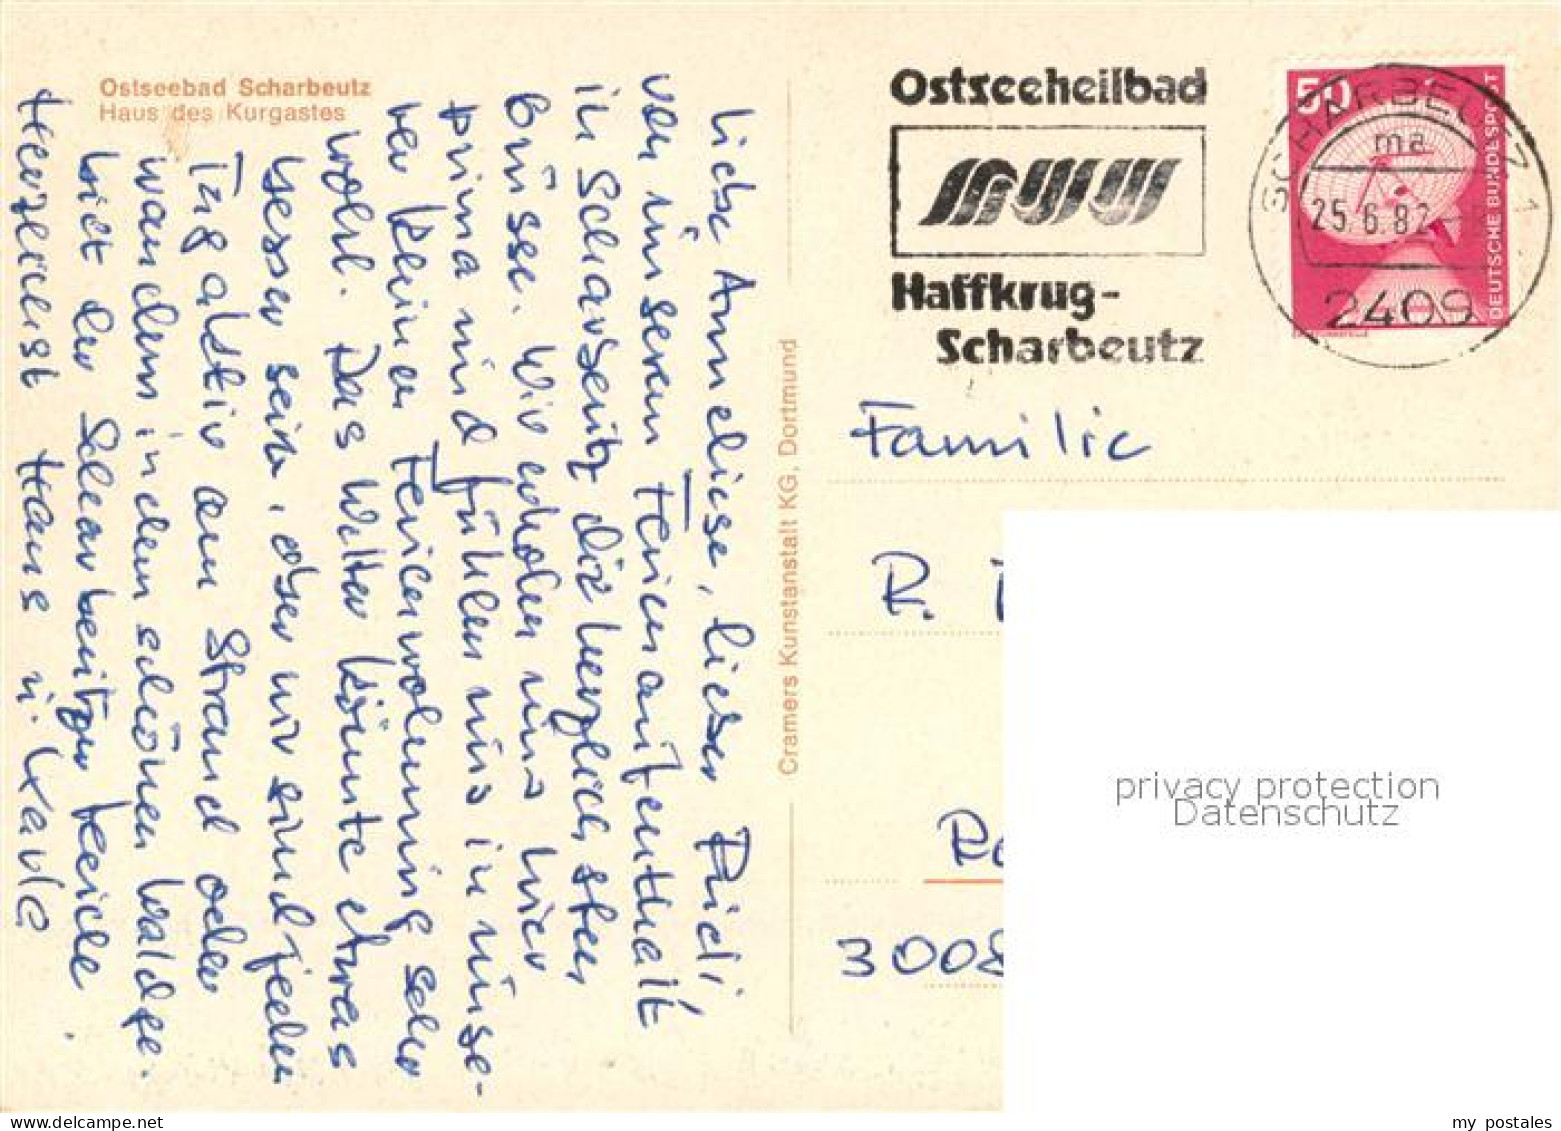 Ostseebad Scharbeutz
Haus des Kurgastes
Liebe Anneliese, lieber Rudi,
von unserem Ferienaufenthalt
in Scharbeutz die herzlichsten
Grüsse. Wir erholen uns hier
prima und fühlen uns in unse-
rer kleinen Ferienwohnung sehr
wohl. Das Wetter könnte etwas
besser sein, aber wir sind jeden
Tag aktiv am Strand oder
wandern in dem schönen Waldge-
biet der Scharbeutzer Heide.
Herzlichst Hans u. Karla
Cramers Kunstanstalt KG, Dortmund
Ostseeheilbad
Haffkrug-
Scharbeutz
50
DEUTSCHE BUNDESPOST
SCHARBEUTZ 1
ma
25.6.82
2409
Familie
R.
3008
privacy protection
Datenschutz
my postales